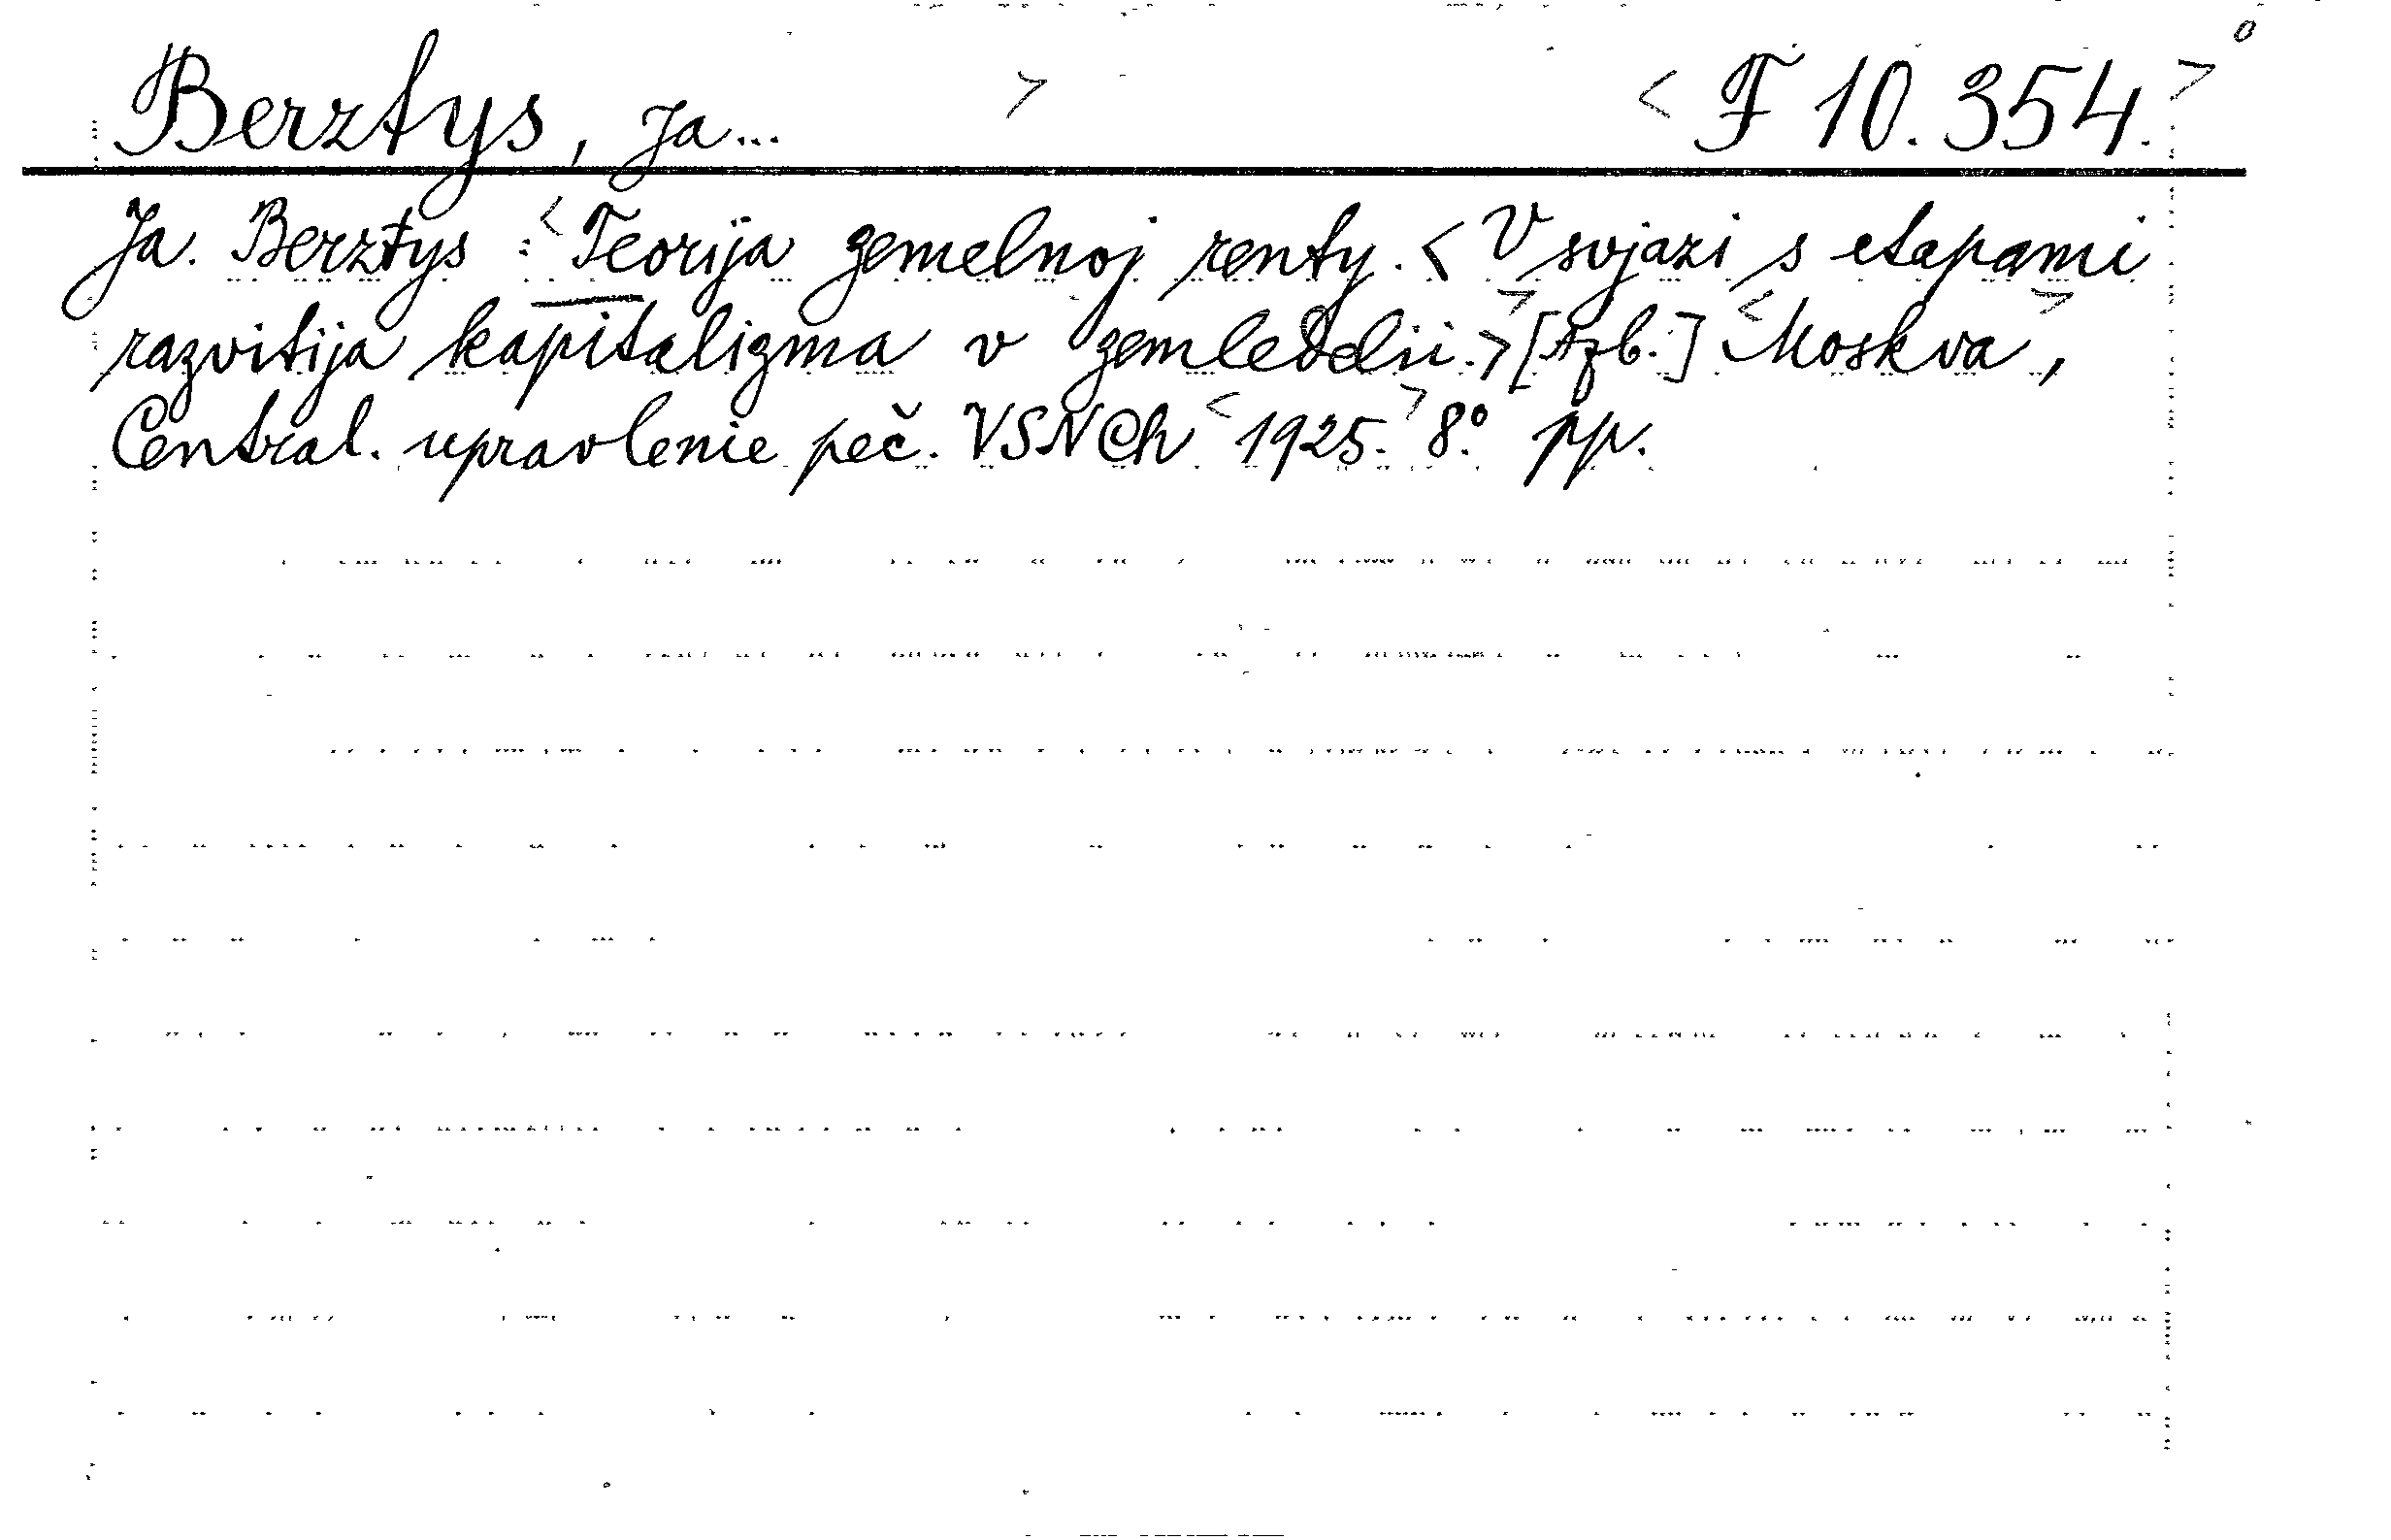 Berztys, Ja... > < F 10.354. >
Ja. Berztys : < Teorija zemelnoj renty. < V svjazi s etapami
razvitija kapitalizma v zemledelii. > > [Azb.] < Moskva >,
Central. upravlenie peč. VSNCh < 1925. > 8.° pp.